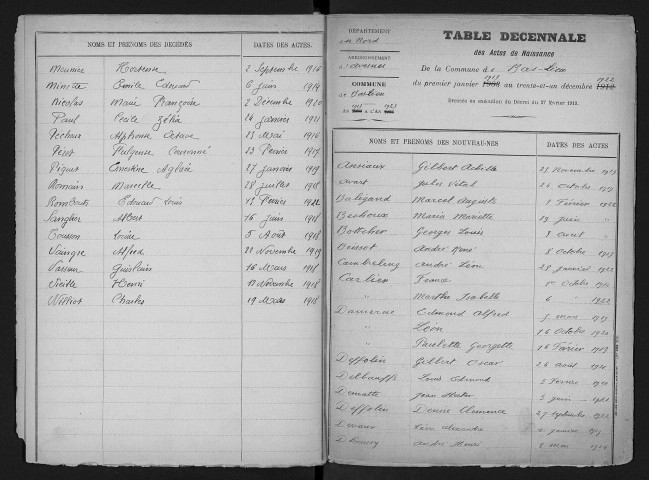 NOMS ET PRENOMS DES DECEDÉS DATES DES ACTES.
Meunier Hortense 2 Septembre 1916
Minette Emile Edouard 6 Juin 1914
Nicolas Marie Françoise 2 Décembre 1920
Paul Cécile Zélia 14 Janvier 1921
Pechaux Alphonse Octave 25 Mai 1916
Pérot Fulgence 23 Février 1917
Piquet Ernestine Aglaée 27 Janvier 1919
Romain Marcelle 28 Juillet 1918
Rombauts Edouard Louis 13 Février 1922
Sanglier Albert 16 Juin 1918
Tousson Louise 5 Août 1918
Vaingre Alfred 21 Novembre 1919
Vassaux Ghislain 16 Mars 1918
Vieille Henri 11 Novembre 1918
Williot Charles 19 Mars 1918
DÉPARTEMENT
du Nord
ARRONDISSEMENT
d'Avesnes
COMMUNE
de Bas-Lieu
1913 A L'AN 1923
TABLE DECENNALE
des Actes de Naissance
De la Commune d e Bas-Lieu
du premier janvier 1913 au trente-et-un décembre 1922
Dressée en exécution du Décret du 27 février 1913.
NOMS ET PRENOMS DES NOUVEAU-NES DATES DES ACTES
Ansiaux Gilbert Achille 23 Novembre 1913
Avart Jules Vital 26 Octobre
Balegand Marcel Auguste 1 Février 1922
Bechoux Maria Mariette 29 Juin "
Bottcher Georges Louis 3 Avril "
Buisset André René 8 Octobre 1913
Cambreling André Léon 23 Janvier 1922
Carlier France Octobre
" Marthe Isabelle 6 " 1922
Damerue Edmond Alfred 5 Mars
" Léon 16 Octobre 1920
" Paulette Georgette 16 Février 1913
Deffolin Gilbert Oscar 26 Août
Delbauffe Louis Edmond 5 Février
Dematte Jean 5 Juin 1921
Deffolin Denise Clémence 27 Septembre 1922
Devaux Léon Alexandre 2 Janvier
André Henri 2 Mai